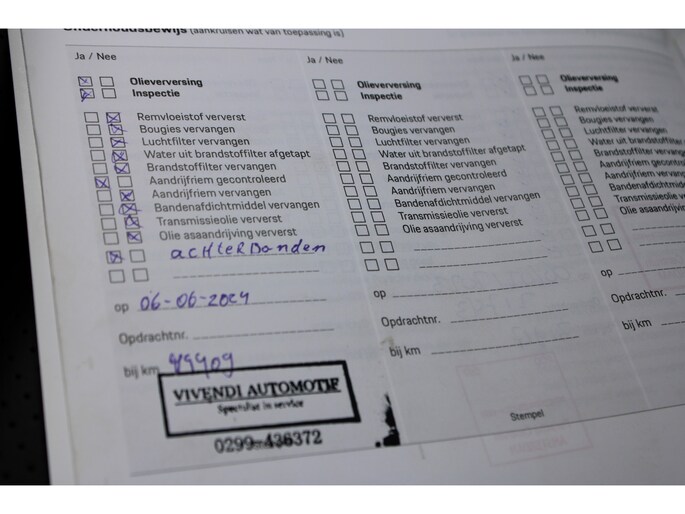 Onderhoudsbewijs (aankruisen wat van toepassing is)
Ja / Nee
Olieverversing
Inspectie
Remvloeistof ververst
Bougies vervangen
Luchtfilter vervangen
Water uit brandstoffilter afgetapt
Brandstoffilter vervangen
Aandrijfriem gecontroleerd
Aandrijfriem vervangen
Bandenafdichtmiddel vervangen
Transmissieolie ververst
Olie asaandrijving ververst
acHterbanden
op 06-06-2024
Opdrachtnr.
bij km
VIVENDI AUTOMOTIF
Specialist in service
0299-436372
Ja / Nee
Olieverversing
Inspectie
Remvloeistof ververst
Bougies vervangen
Luchtfilter vervangen
Water uit brandstoffilter afgetapt
Brandstoffilter vervangen
Aandrijfriem gecontroleerd
Aandrijfriem vervangen
Bandenafdichtmiddel vervangen
Transmissieolie ververst
Olie asaandrijving ververst
op
Opdrachtnr.
bij km
Stempel
Ja / Nee
Olieverversing
Inspectie
Remvloeistof ververst
Bougies vervangen
Luchtfilter vervangen
Water uit brandstoffilter
Brandstoffilter vervangen
Aandrijfriem gecontrol
Aandrijfriem vervang
Bandenafdichtmidde
Transmissieolie ver
Olie asaandrijving
op
Opdrachtnr.
bij km